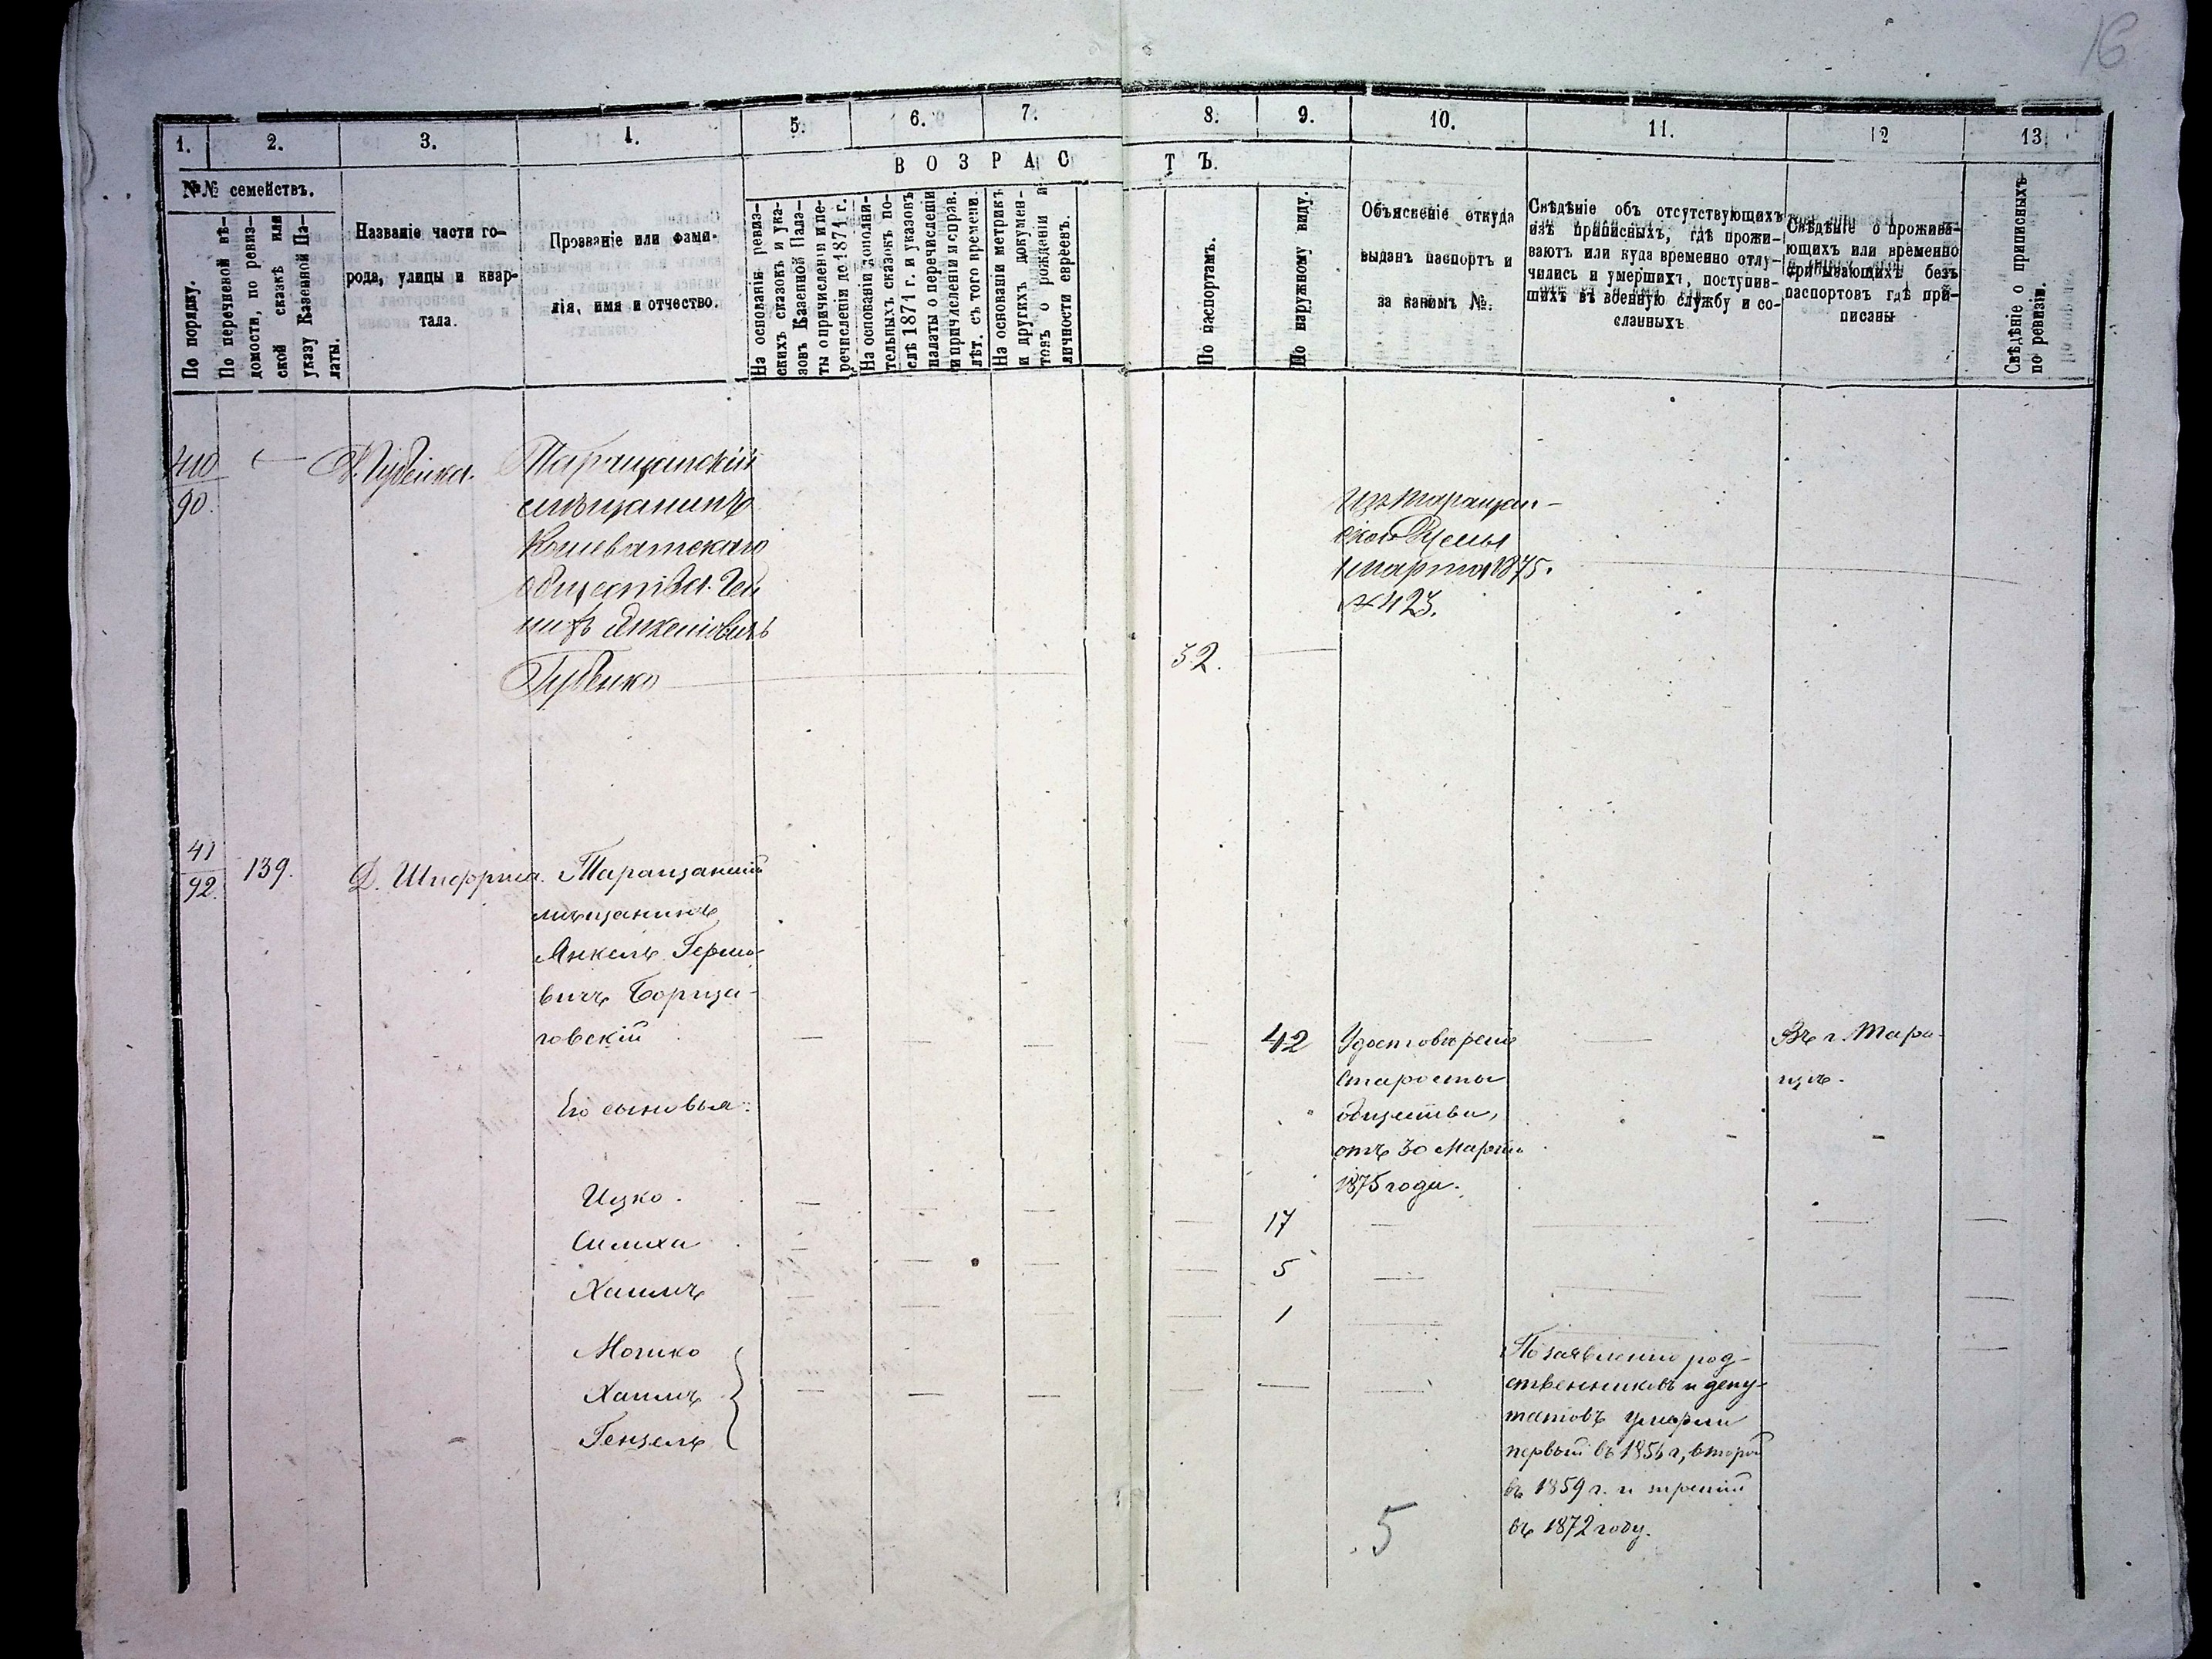 16
1. 2. 3. 4. 5. 6. 7. 8. 9. 10. 11. 12 13
ВОЗРАСТЪ.
№№ семействъ.
По порядку.
По перечневой вѣ-
домости, по ревиз-
ской сказкѣ или
указу Казенной Па-
латы.
Названіе части го-
рода, улицы и квар-
тала.
Прозваніе или фами-
лія, имя и отчество.
На основаніи ревиз-
скихъ сказокъ и ука-
зовъ Казенной Пала-
ты о причисленіи и пе-
речисленіи до 1871 г.
На основаніи дополни-
тельныхъ сказокъ по-
слѣ 1871 г. и указовъ
палаты о перечисленіи
и причисленіи и справ.
лѣт. съ того времени.
На основаніи метрикъ
и другихъ докумен-
товъ о рожденіи и
личности евреевъ.
По паспортамъ.
По наружному виду.
Объясненіе откуда
выданъ паспортъ и
за какимъ №.
Свѣдѣніе объ отсутствующихъ
изъ приписныхъ, гдѣ прожи-
ваютъ или куда временно отлу-
чились и умершихъ, поступив-
шихъ въ военную службу и со-
сланныхъ
Свѣдѣніе о прожива-
ющихъ или временно
прибывающихъ безъ
паспортовъ гдѣ при-
писаны
Свѣдѣніе о приписныхъ
по ревизіи.
410
90.
Таращанскій
мѣщанинъ
Кошеватскаго
общества
Янкеліовичъ
Губенко
32.
Изъ Таращан-
ской Думы
1 марта 1875.
№ 423.
41
92.
139.
Д. Шифрина.
Таращанскій
мѣщанинъ
Янкель Гершо-
вичъ Борща-
говскій
42
Удостовѣреніе
Старосты
общества,
отъ 30 Марта
1875 года.
Въ г. Тара-
щѣ.
Его сыновья:
Ицко. 17
Симха 5
Хаимъ 1
Мошко
Хаимъ
Гензель
По заявленію род-
ственниковъ и депу-
татовъ умерли
первый въ 1856 г, второй
въ 1859 г. и третій
въ 1872 году.
5